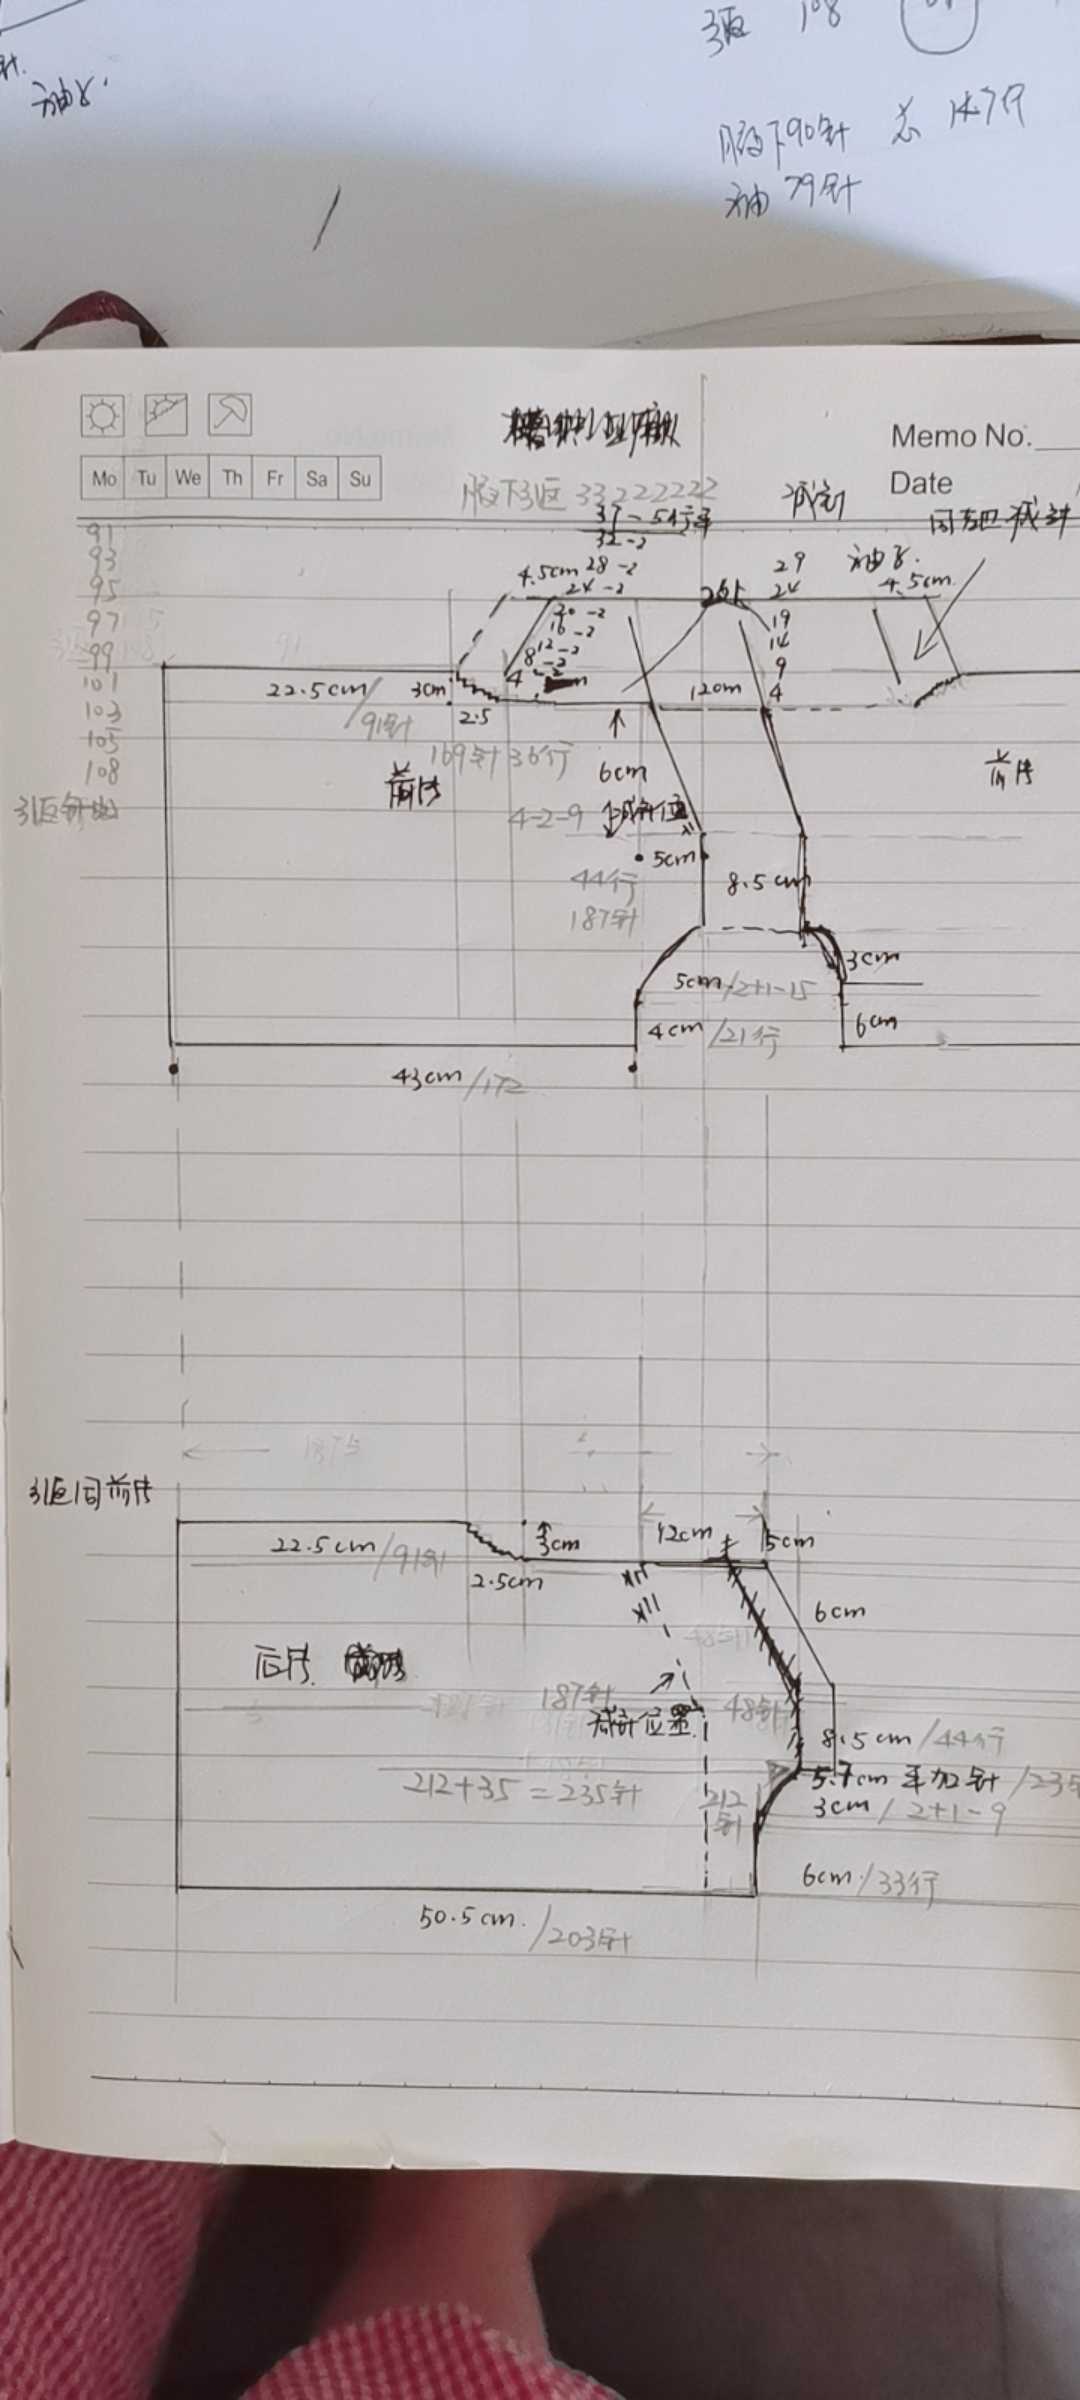 引返 108
针.
袖子.
腋下90针 总 147行
袖 79针
Memo No.
Mo Tu We Th Fr Sa Su
Date
腋下引返 33222222
减针
37-5行平
32-2
同左边减针
91
93
95
97
99
101
103
105
108
4.5cm
28-2
24-2
20-2
16-2
12-2
8-2
4-2
26行
29
24
19
14
9
4
袖子.
4.5cm
22.5cm/91针
3cm
2.5
12cm
169针 36行
6cm
前片
前片
4-2-9
减针位
5cm
8.5cm
44行
187针
3cm
5cm/2+1-15
4cm/21行
6cm
43cm/172
187针
引返同前片
22.5cm/91针
3cm
12cm
5cm
2.5cm
6cm
后片.
187针
减针位置
48针
8.5cm/44行
212+35=235针
212针
5.7cm 平加针/235
3cm/2+1-9
6cm/33行
50.5cm./203针